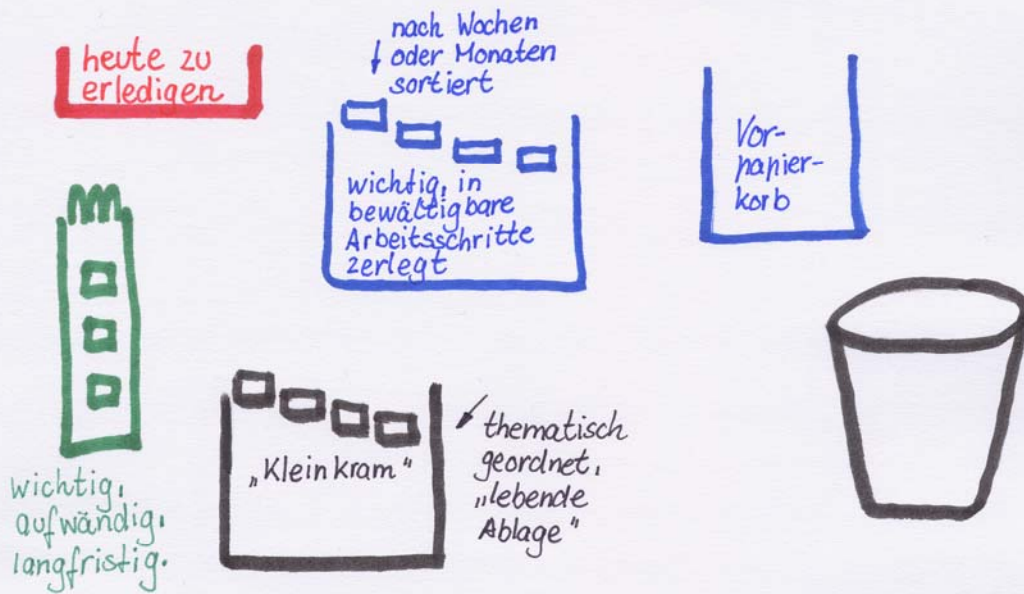 heute zu
erledigen
nach Wochen
oder Monaten
sortiert
wichtig, in
bewältigbare
Arbeitsschritte
zerlegt
Vor-
papier-
korb
wichtig,
aufwändig,
langfristig.
„Kleinkram“
thematisch
geordnet,
„lebende
Ablage“